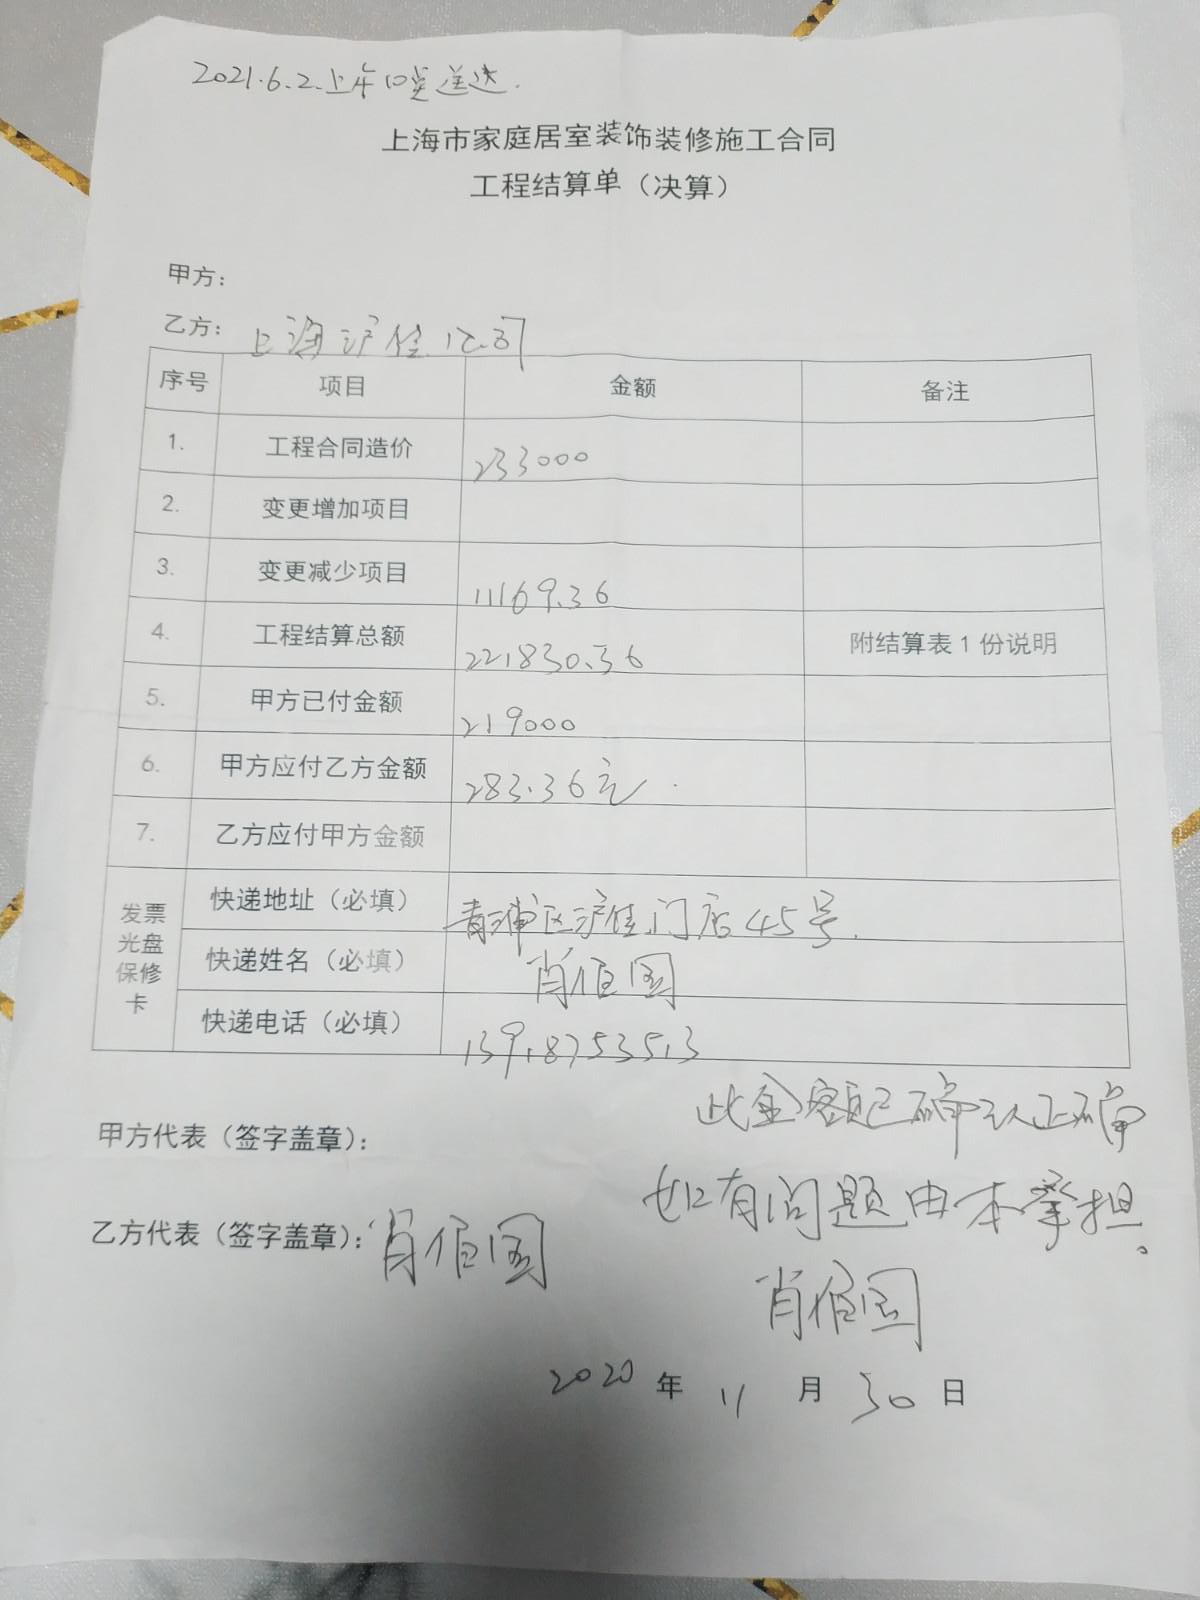 2021.6.2.上午10点送达.
上海市家庭居室装饰装修施工合同
工程结算单（决算）
甲方：
乙方：上海沪佳公司
序号 项目 金额 备注
1. 工程合同造价 233000
2. 变更增加项目
3. 变更减少项目 11169.36
4. 工程结算总额 221830.36 附结算表1份说明
5. 甲方已付金额 219000
6. 甲方应付乙方金额 283.36元.
7. 乙方应付甲方金额
发票光盘保修卡
快递地址（必填） 青浦区沪佳门店45号.
快递姓名（必填） 肖佰国
快递电话（必填） 13918753513
此金额已确认正确
甲方代表（签字盖章）：
如有问题由本承担。
乙方代表（签字盖章）：肖佰国
肖佰国
2020年11月30日